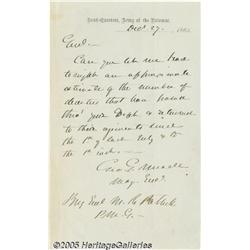 Head-Quarters, Army of the Potomac,
Decr 27. 186
Genl.
Can you let me have
tonight an approximate
estimate of the number of
deserters that have passed
thro' your Dept. & returned
to their regiments since
the 1st of last July & to
the 1st inst.
Geo G. Meade
Maj Genl.
Brig Genl M. R. Patrick
P.M.G.
©2005 HeritageGalleries